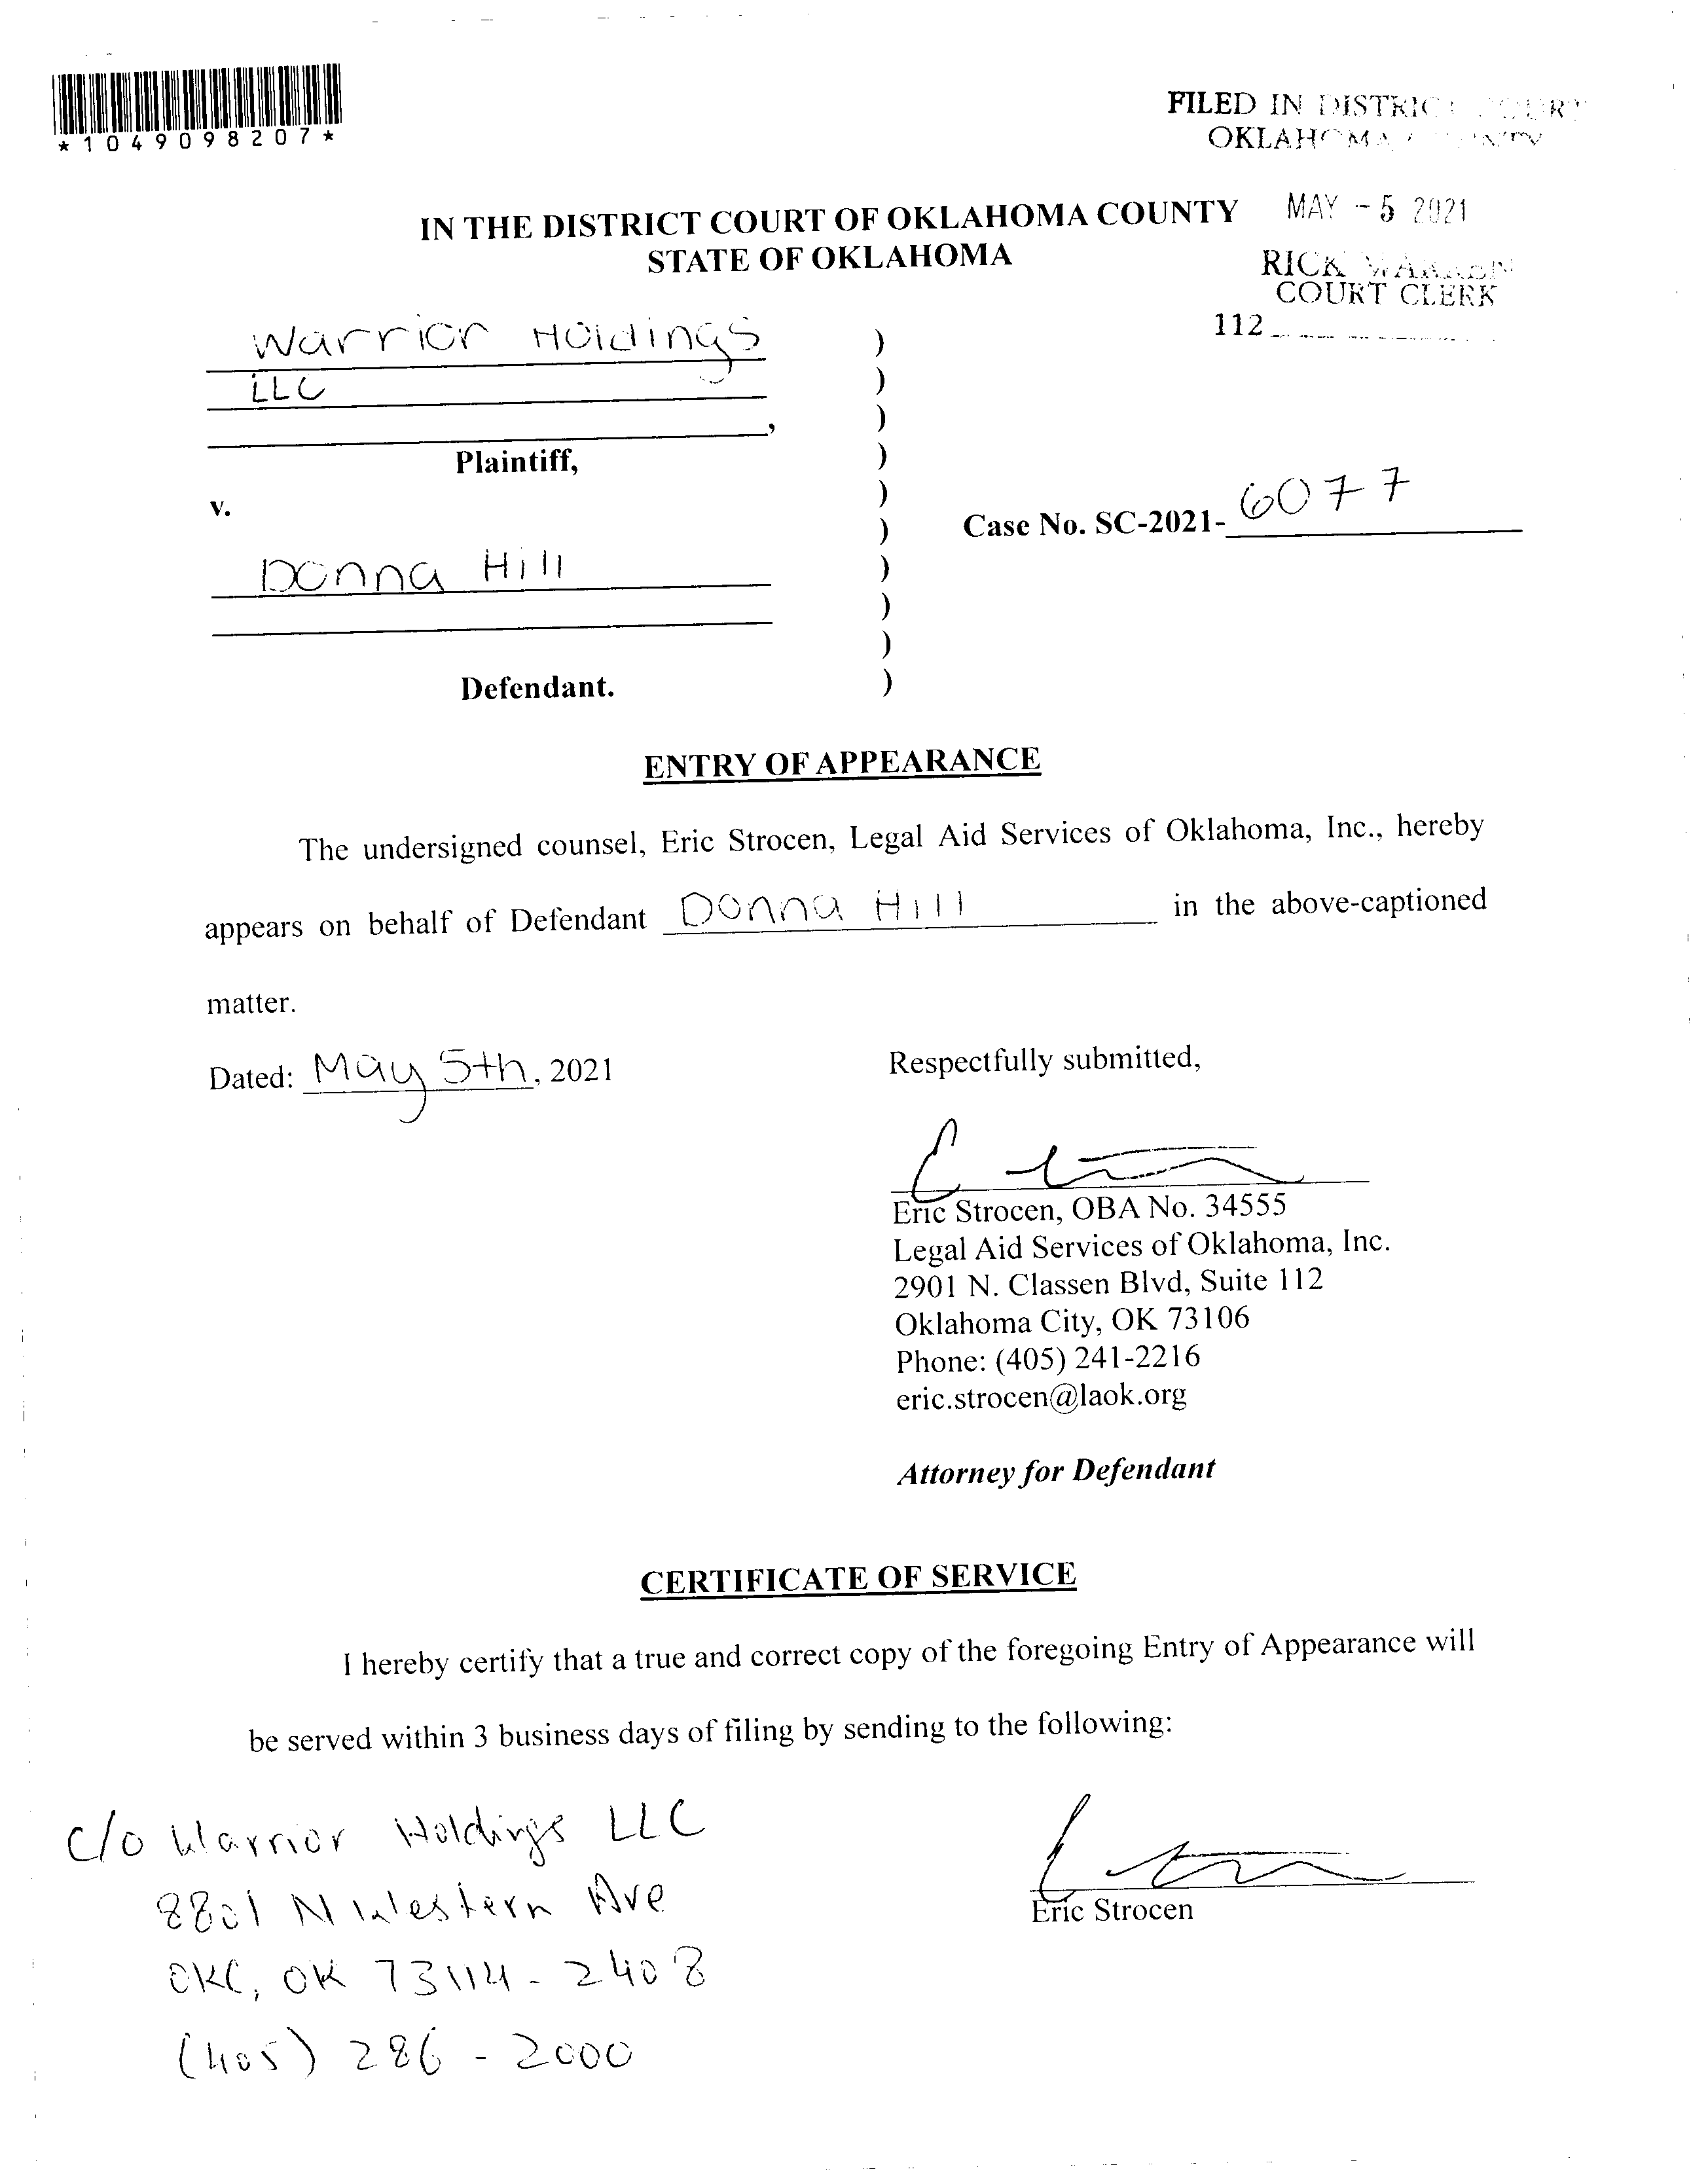 *1049098207*
FILED IN DISTRICT COURT
OKLAHOMA COUNTY
MAY - 5 2021
RICK WARREN
COURT CLERK
112
IN THE DISTRICT COURT OF OKLAHOMA COUNTY
STATE OF OKLAHOMA
Warrior Holdings
LLC
,
Plaintiff,
v.
Case No. SC-2021- 6077
Donna Hill
Defendant.
)
)
)
)
)
)
)
)
)
)
ENTRY OF APPEARANCE
The undersigned counsel, Eric Strocen, Legal Aid Services of Oklahoma, Inc., hereby
appears on behalf of Defendant Donna Hill in the above-captioned
matter.
Dated: May 5th, 2021
Respectfully submitted,
Eric Strocen, OBA No. 34555
Legal Aid Services of Oklahoma, Inc.
2901 N. Classen Blvd, Suite 112
Oklahoma City, OK 73106
Phone: (405) 241-2216
eric.strocen@laok.org
Attorney for Defendant
CERTIFICATE OF SERVICE
I hereby certify that a true and correct copy of the foregoing Entry of Appearance will
be served within 3 business days of filing by sending to the following:
C/O Warrior Holdings LLC
8801 N Western Ave
OKC, OK 73114-2408
(405) 286-2000
Eric Strocen